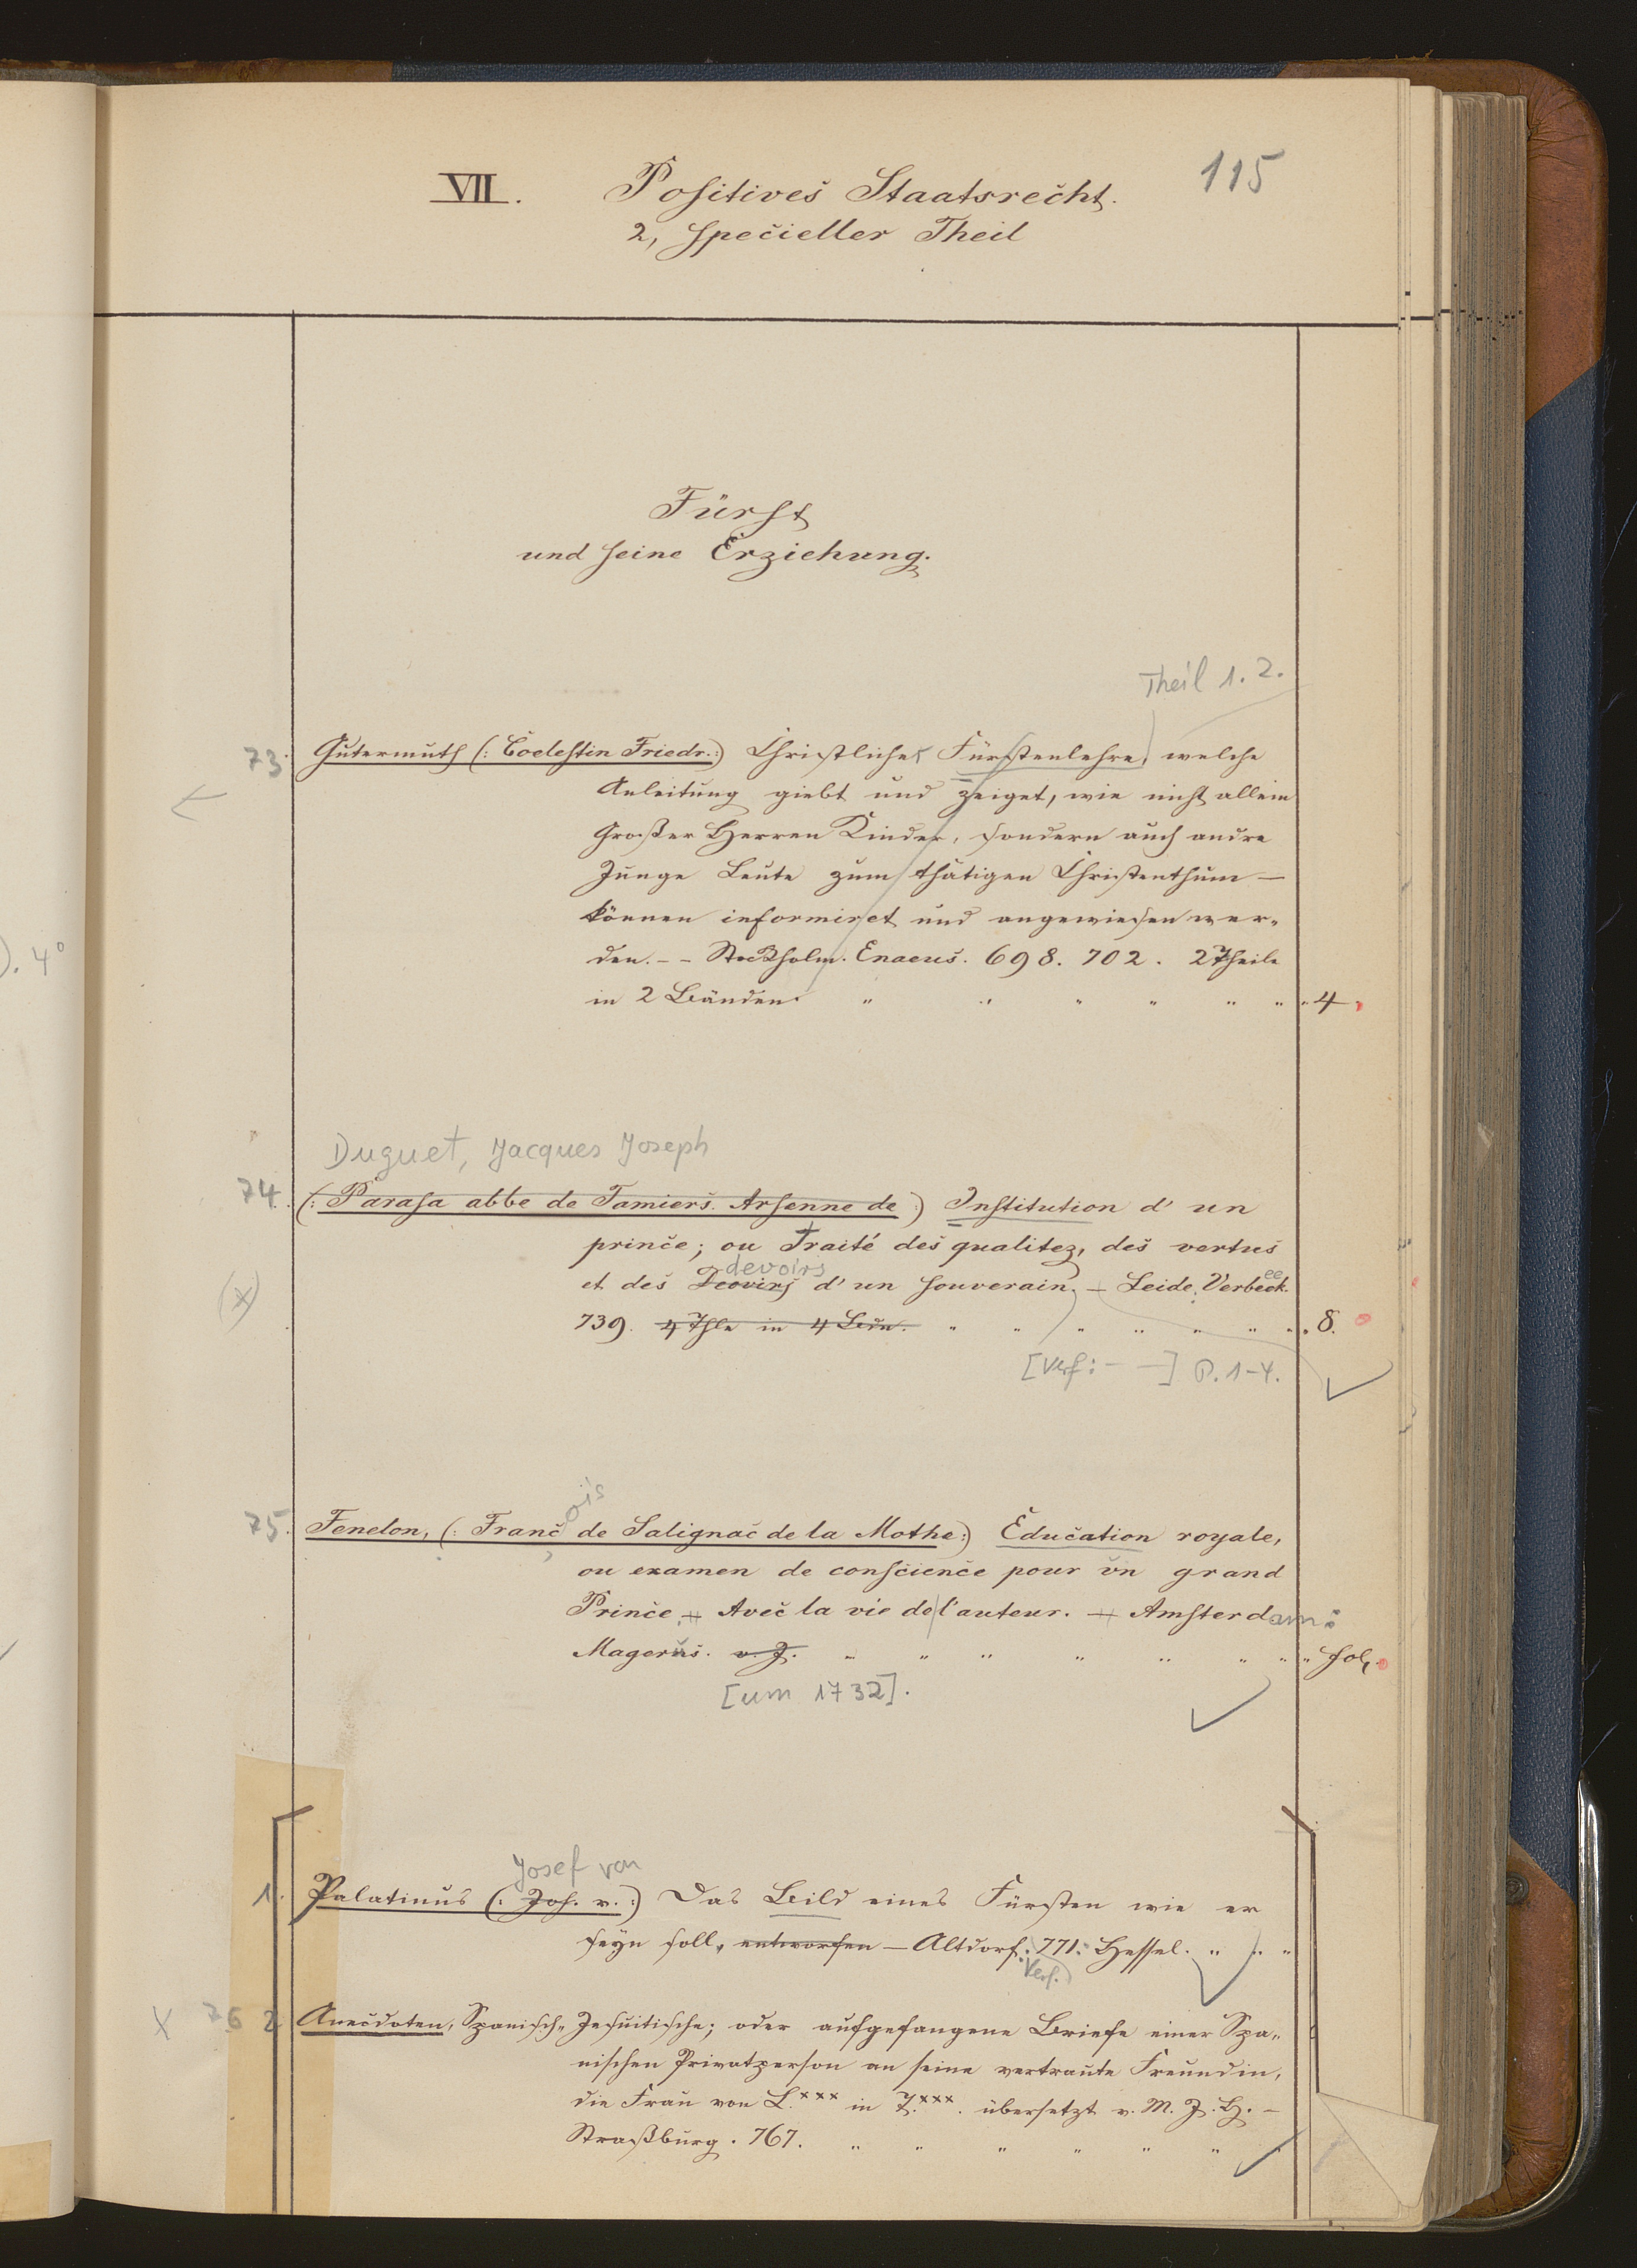 115
VII. Positives Staatsrecht.
2, Specieller Theil
Fürst
und seine Erziehung.
Theil 1. 2.
73. Gutermuth (: Coelestin Friedr. :) Christliche Fürstenlehre, welche
Anleitung giebt und zeiget, wie nicht allein
Großer Herren Kinder, sondern auch andre
Junge Leute zum thätigen Christenthum —
können informiret und angewiesen wer-
den. – – Stockholm. Enaeus. 698. 702. 2 Theile
in 2 Bänden. " " " " " " " 4.
). 4°
Duguet, Jacques Joseph
74. (: Parasa abbe de Tamiers. Arsenne de :) Institution d' un
prince; ou Traité des qualitez, des vertus
devoirs
et des d' un souverain. — Leide. Verbeek.
739. 4 Thle in 4 Bdn. " " " " " " " 8.
[Verf: – —] P. 1-4.
ois
75. Fenelon, (: Franc de Salignac de la Mothe :) Education royale,
ou examen de conscience pour un grand
Prince. — Avec la vie de l'auteur. — Amsterdam:
Magerus. o. J. " " " " " " " " fol.
[um 1732].
Josef von
1. Palatinus (: Jos. v. :) Das Bild eines Fürsten wie er
seyn soll, entworfen — Altdorf. 771. Hessel. " " "
Verf.
X 76 2 Anecdoten, Spanisch- Jesuitische; oder aufgefangene Briefe einer Spa-
nischen Privatperson an seine vertraute Freundin,
die Frau von L.xxx in T.xxx. übersetzt v. M. J. H. –
Straßburg. 767. " " " " " " "